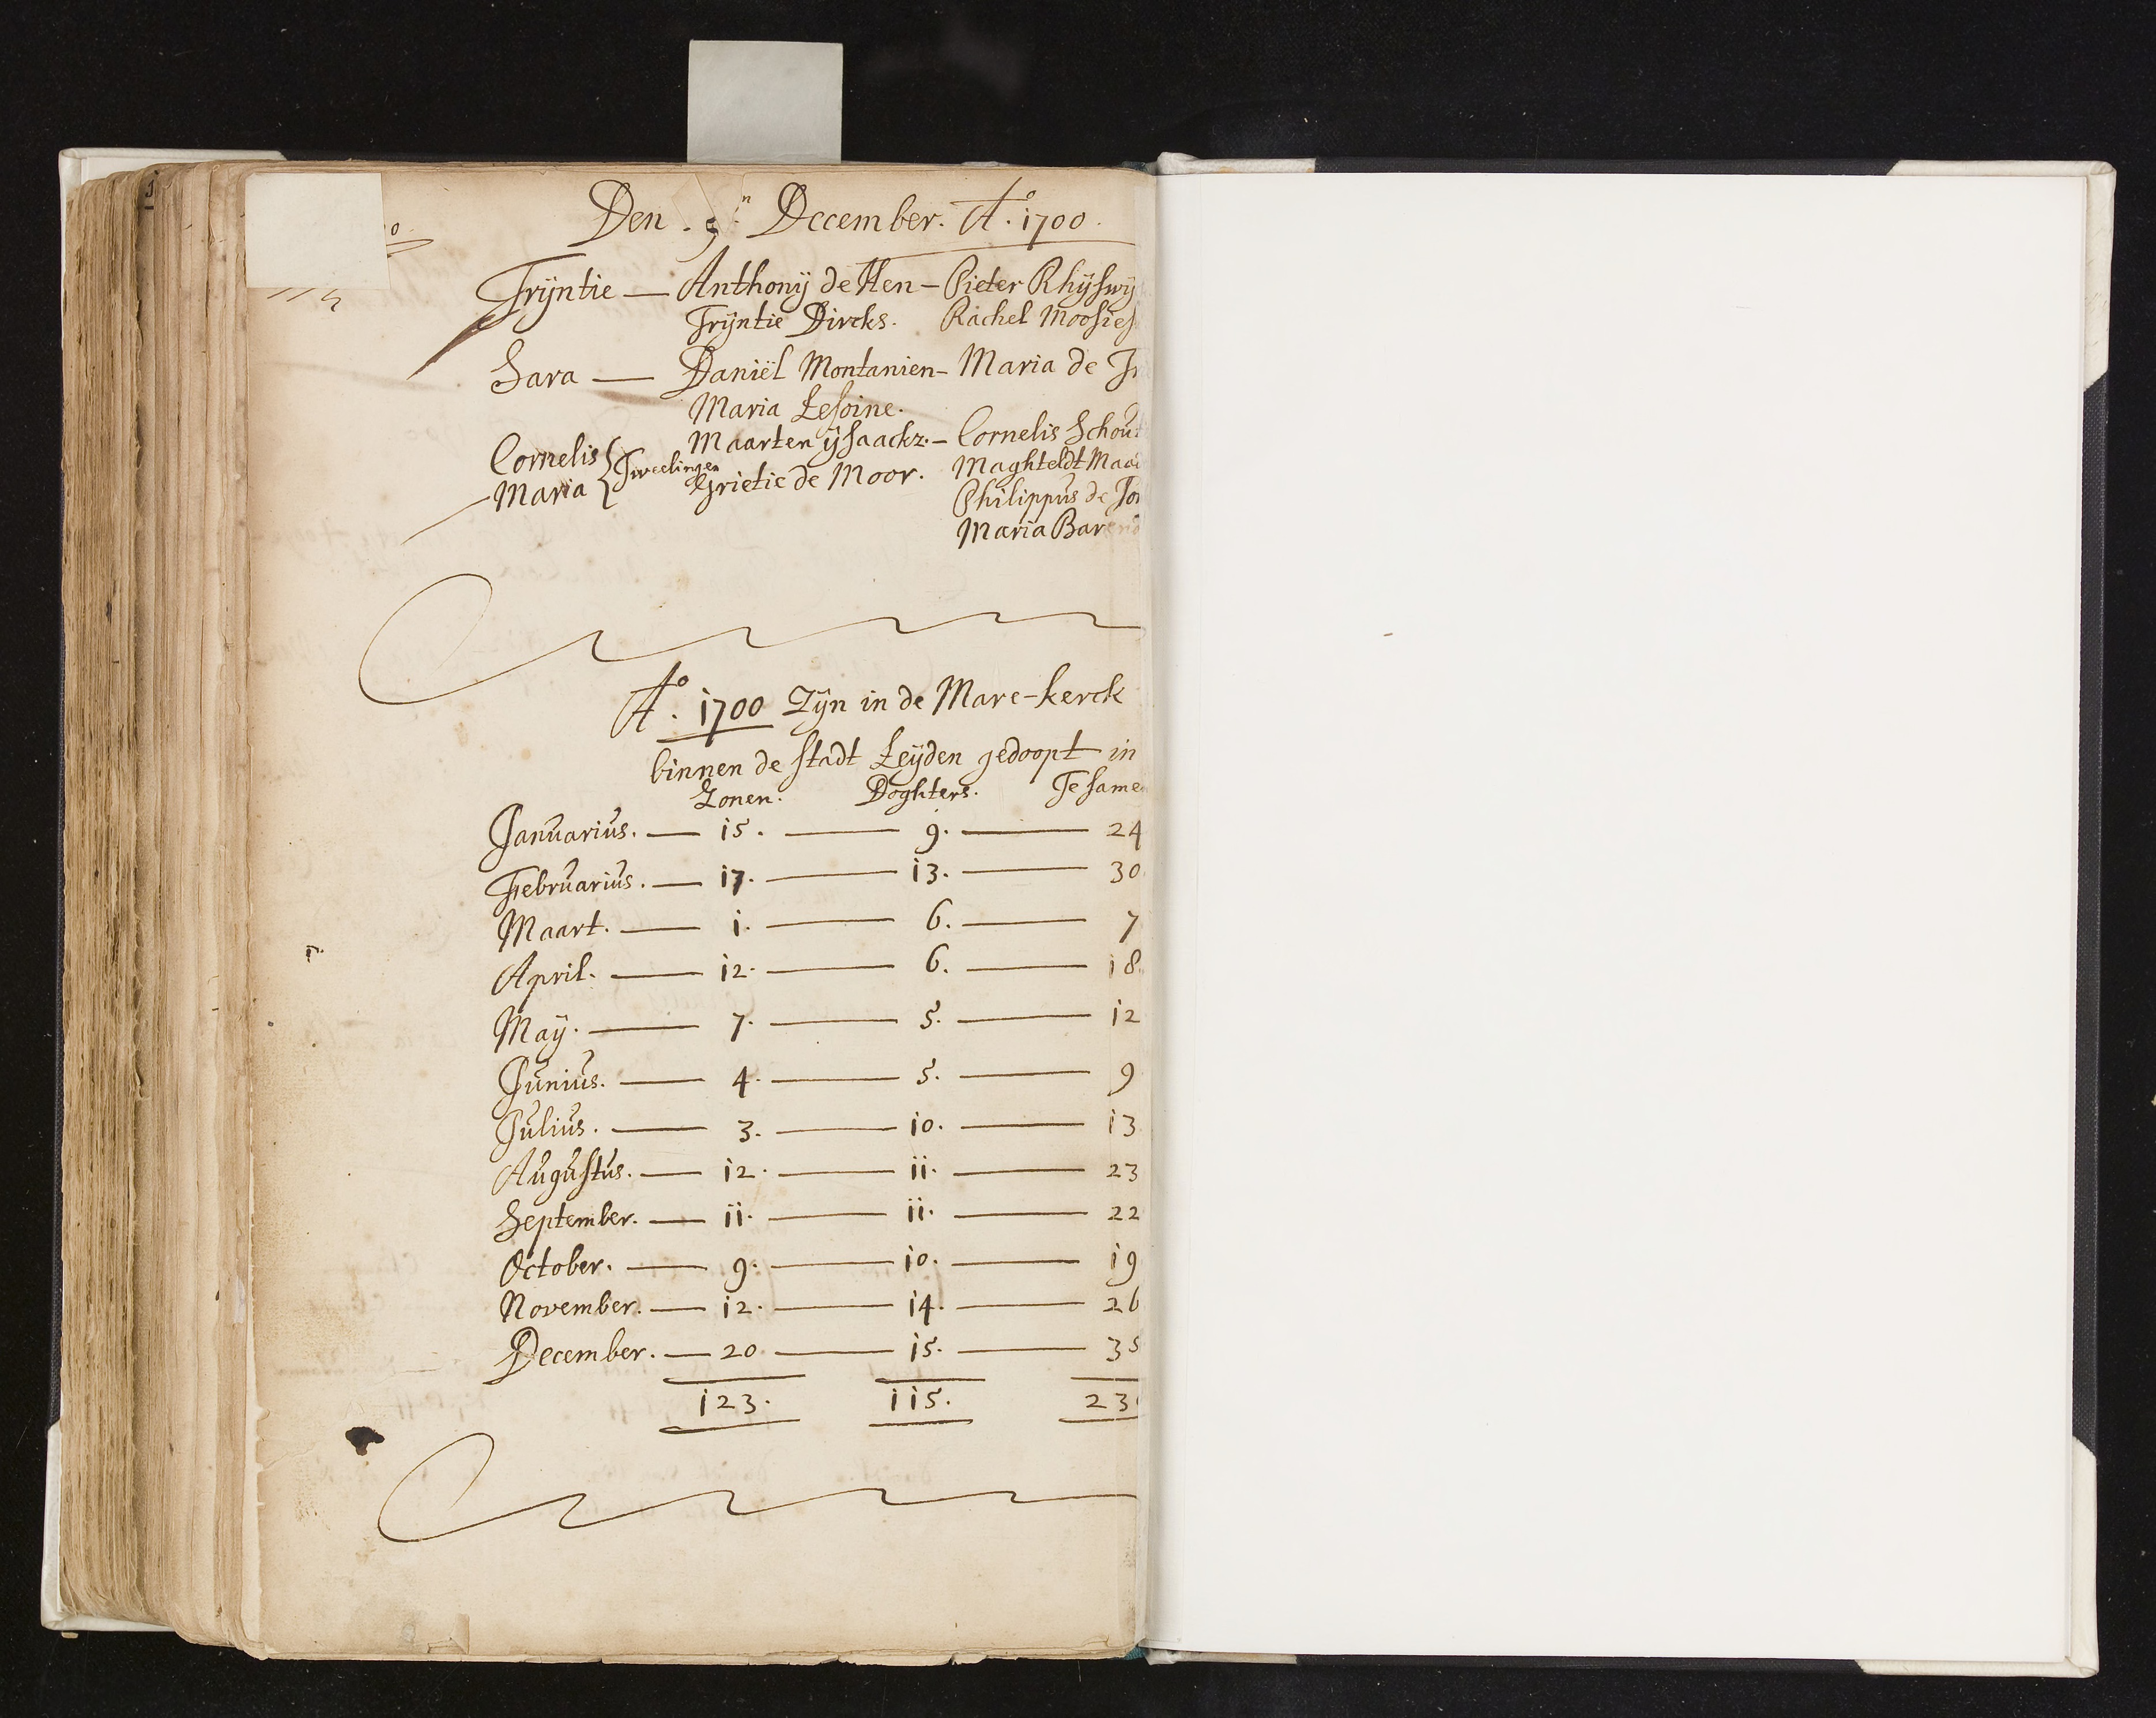 Den . 5.n December. Ao. 1700.
Trÿntie — Anthonÿ de Hen – Pieter Rhÿswÿ
Trÿntie Dircks. Rachel Moosies
Sara — Daniël Montanien – Maria de
Maria Lesoine.
Maarten ÿsaackz. – Cornelis Schout
Cornelis Tweelingen Grietie de Moor. Maghteldt Maa
Maria Philippus de
Maria Barend
Ao. 1700 Zÿn in de Mare-kerck
binnen de stadt Leÿden gedoopt in
Zonen. Doghters. Te samen
Januarius. — 15. — 9. — 24
Februarius. — 17. — 13. — 30
Maart. — 1. — 6. — 7
April. — 12. — 6. — 18.
Maÿ. — 7. — 5. — 12
Junius. — 4. — 5. — 9
Julius. — 3. — 10. — 13
Augustus. — 12. — 11. — 23
September. — 11. — 11. — 22
October. — 9. — 10. — 19
November. — 12. — 14. — 26
December. — 20 — 15. — 35
123. 115. 23